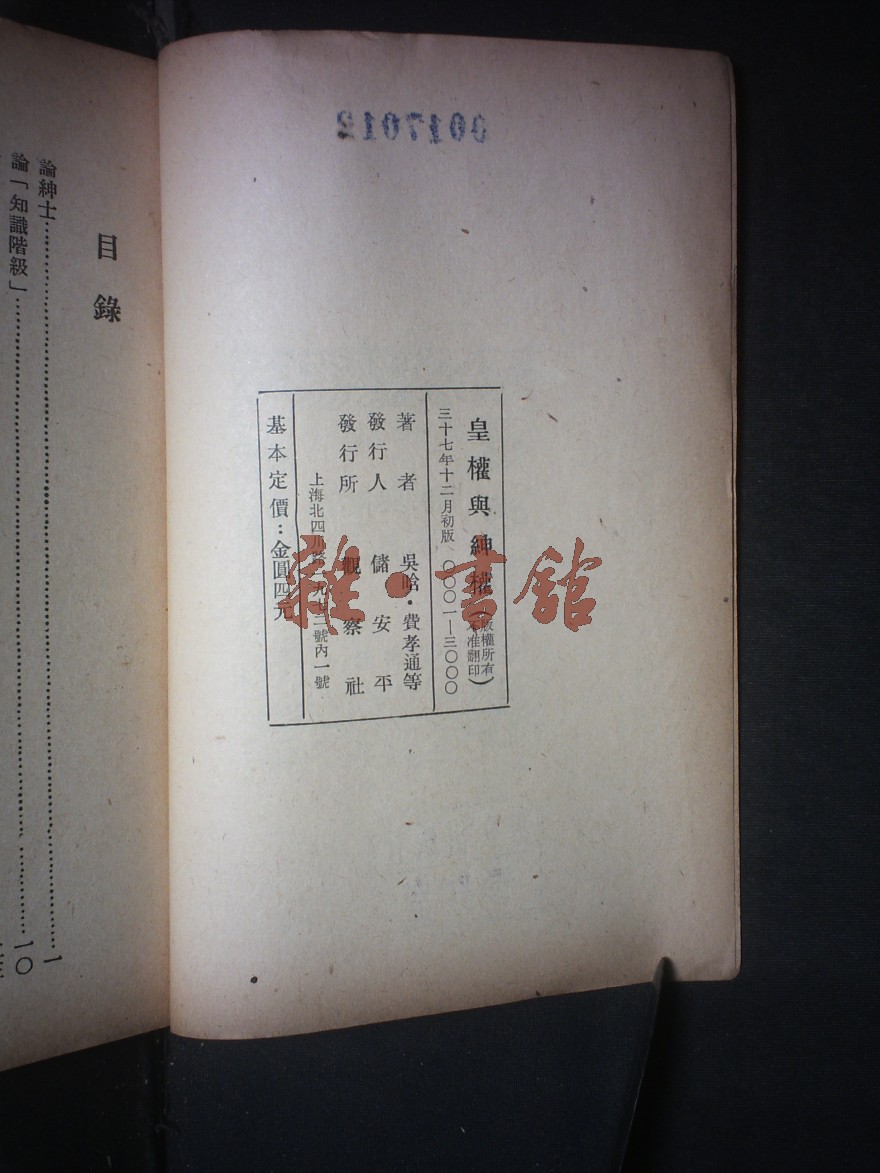 0017012
皇權與紳權（版權所有 不准翻印）
三十七年十二月初版 〇〇〇一—三〇〇〇
著者 吳晗·費孝通等
發行人 儲安平
發行所 觀察社
上海北四川路一九七二號內一號
基本定價：金圓四元
雜·書館
目錄
論紳士 1
論「知識階級」 10